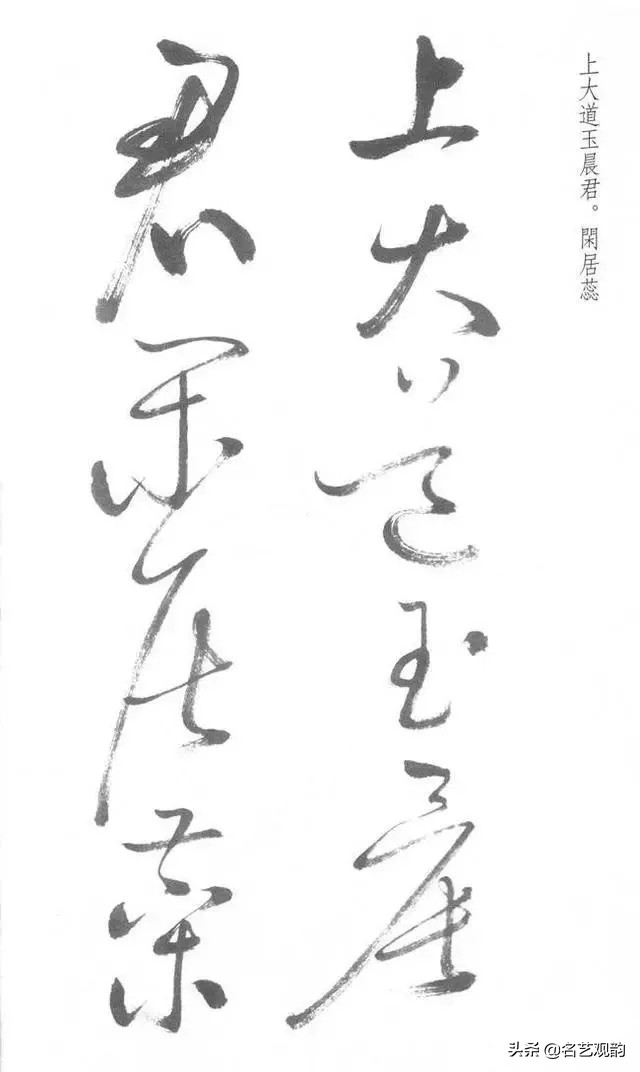 上大道玉晨君。閑居蕊
上大道玉晨
君閑居蕊
头条 @名艺观韵